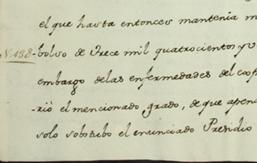 el que hasta entonces mantenia
N. 158. bolso de Trece mil quatrocientos y
embargo de las enfermedades del
rió el mencionado grado, de que apen
solo sobstubo el enunciado Presidio